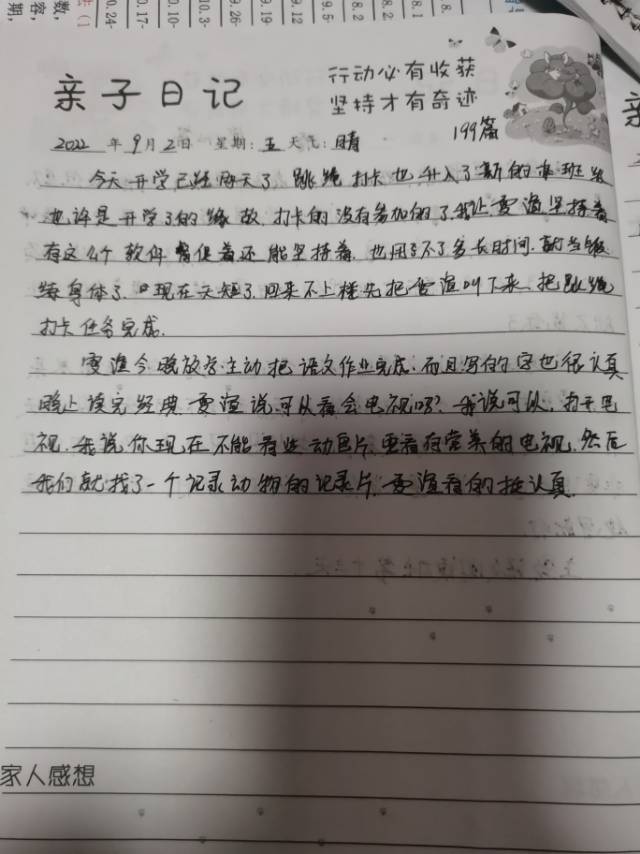 亲子日记
行动必有收获
坚持才有奇迹
199篇
2022年9月2日 星期:五 天气:晴
今天开学已经两天了 跳绳打卡也升入了新的
也许是开学了的缘故.打卡的没有参加的了.我让雯渲坚持着
有这么个软件督促着还能坚持着.也用不了多长时间.就当锻
练身体了.现在天短了.回来不上楼先把雯渲叫下来.把跳绳
打卡任务完成.
雯渲今晚放学.主动把语文作业完成.而且写的字也很认真
晚上读完经典 雯渲说.可以看会电视吗?我说可以.打开电
视.我说你现在不能看些动画片.要看有营养的电视.然后
我们就找了一个记录动物的记录片.雯渲看的挺认真.
家人感想